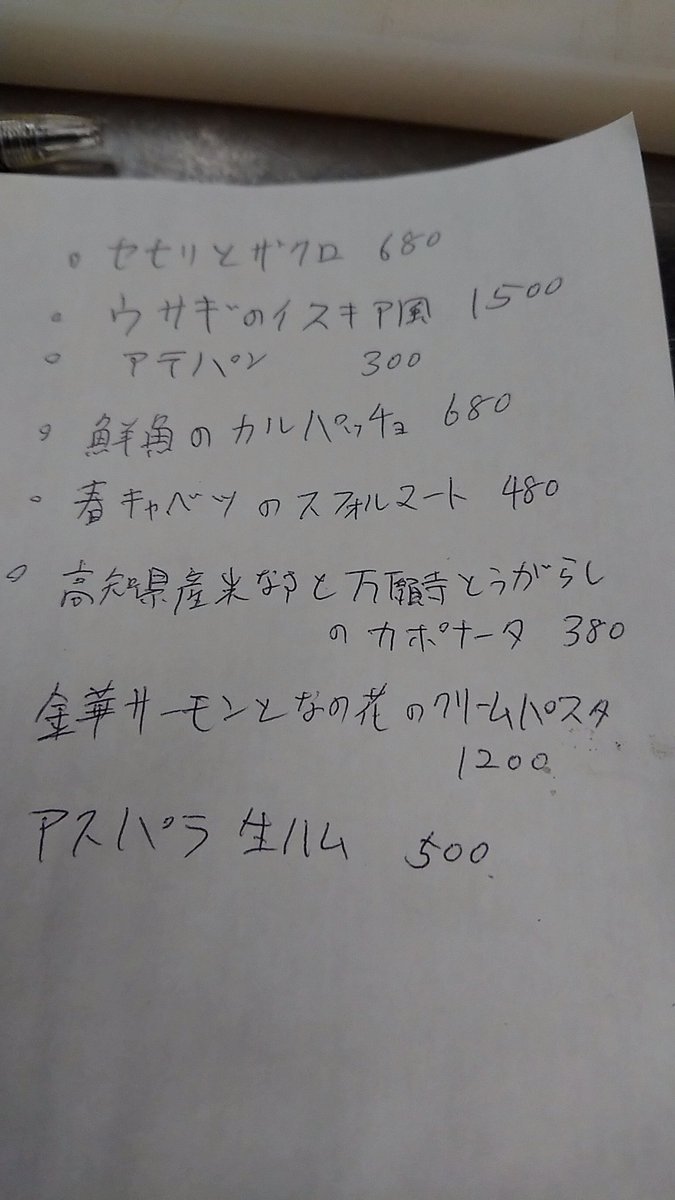 ○ セセリとザクロ 680
○ ウサギのイスキア風 1500
○ アテパン 300
○ 鮮魚のカルパッチョ 680
○ 春キャベツのスフォルマート 480
○ 高知県産米なすと万願寺とうがらし
のカポナータ 380
金華サーモンとなの花のクリームパスタ
1200
アスパラ生ハム 500